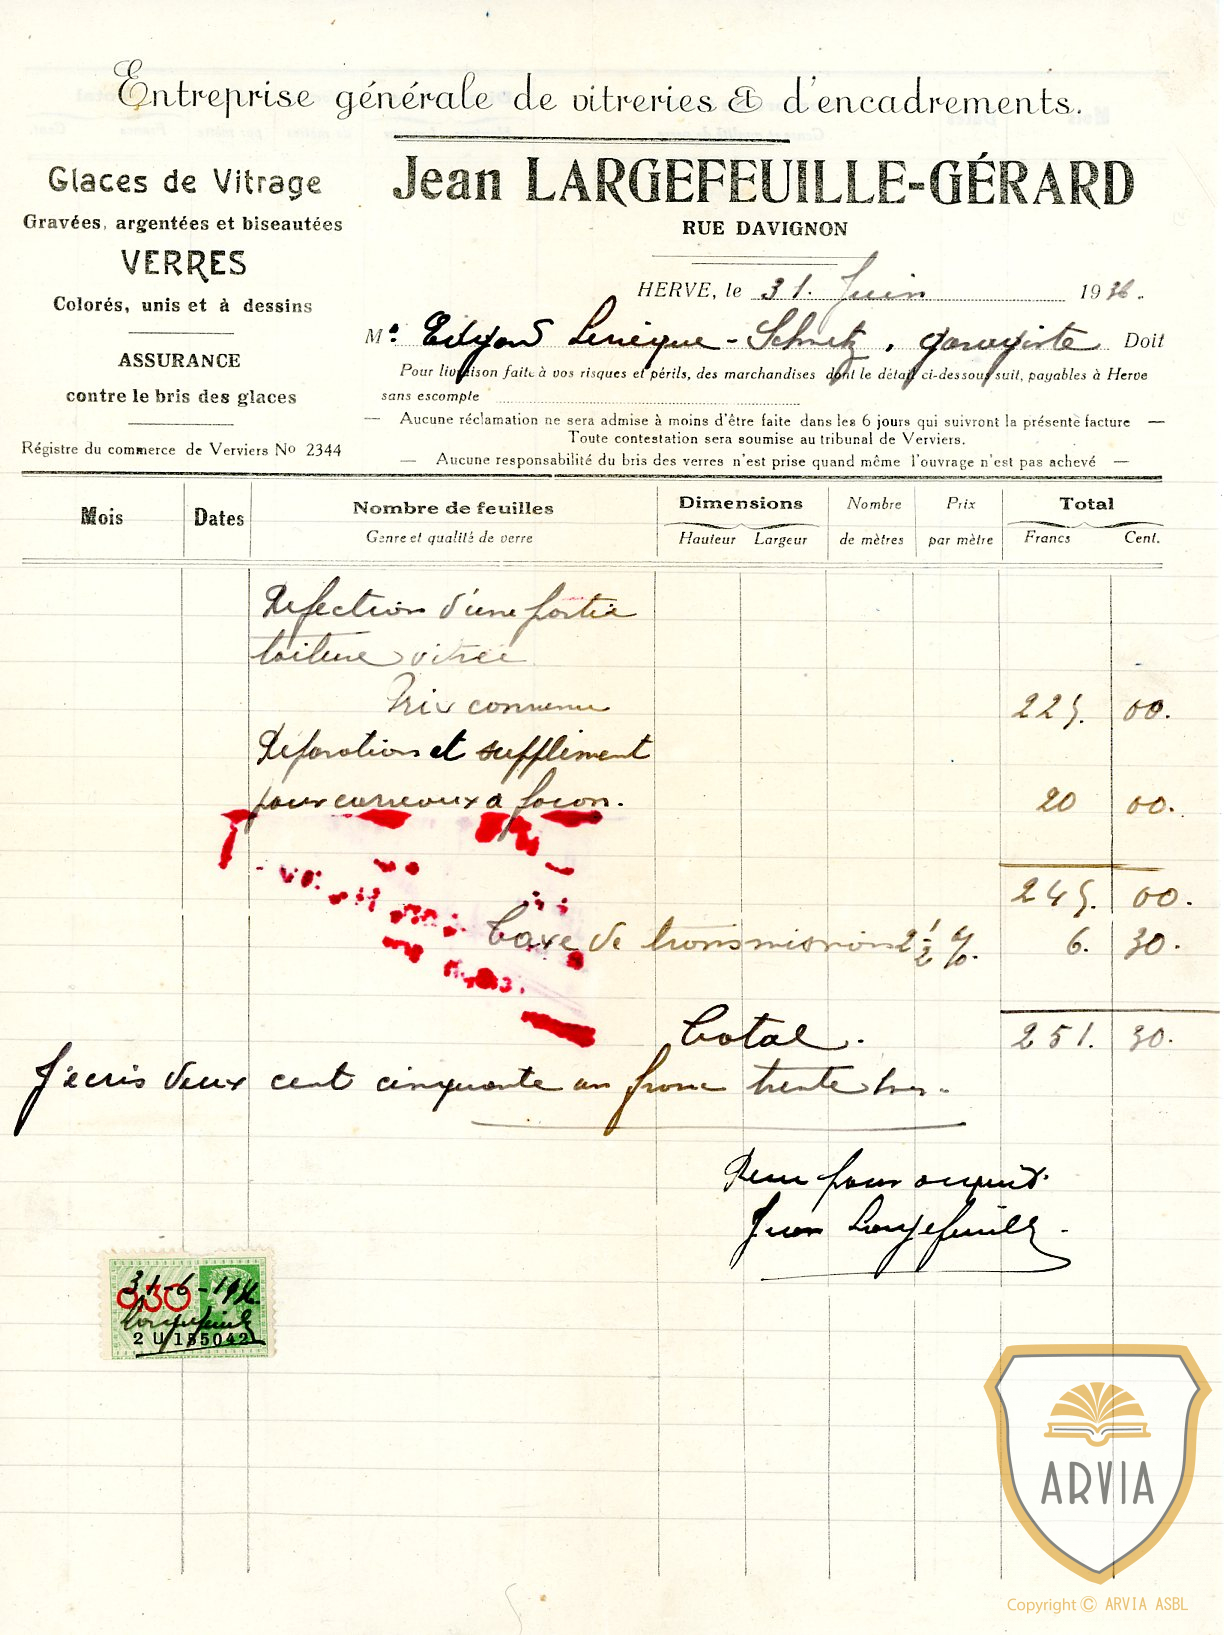 Entreprise générale de vitreries & d'encadrements.
Glaces de Vitrage
Gravées, argentées et biseautées
VERRES
Colorés, unis et à dessins
ASSURANCE
contre le bris des glaces
Régistre du commerce de Verviers No 2344
Jean LARGEFEUILLE-GÉRARD
RUE DAVIGNON
HERVE, le 31. Juin 1936.
M. Schmetz, garagiste Doit
Pour livraison faite à vos risques et périls, des marchandises dont le détail ci-dessous suit, payables à Herve
sans escompte
— Aucune réclamation ne sera admise à moins d'être faite dans les 6 jours qui suivront la présente facture —
Toute contestation sera soumise au tribunal de Verviers.
— Aucune responsabilité du bris des verres n'est prise quand même l'ouvrage n'est pas achevé —
Mois Dates Nombre de feuilles Dimensions Nombre Prix Total
Genre et qualité de verre Hauteur Largeur de mètres par mètre Francs Cent.
Refection d'une partie
toiture vitrée
Prix convenu 225. 00.
Reparation et suppliment
pour carreaux a façon. 20 00.
245. 00.
Taxe de transmission 2 1/2 %. 6. 30.
Total. 251. 30.
J'ecris deux cent cinquante un franc trente
pour acquit.
Jean Largefeuille
31-6-1936.
0.30
Largefeuille
2 U 155042
ARVIA
Copyright © ARVIA ASBL